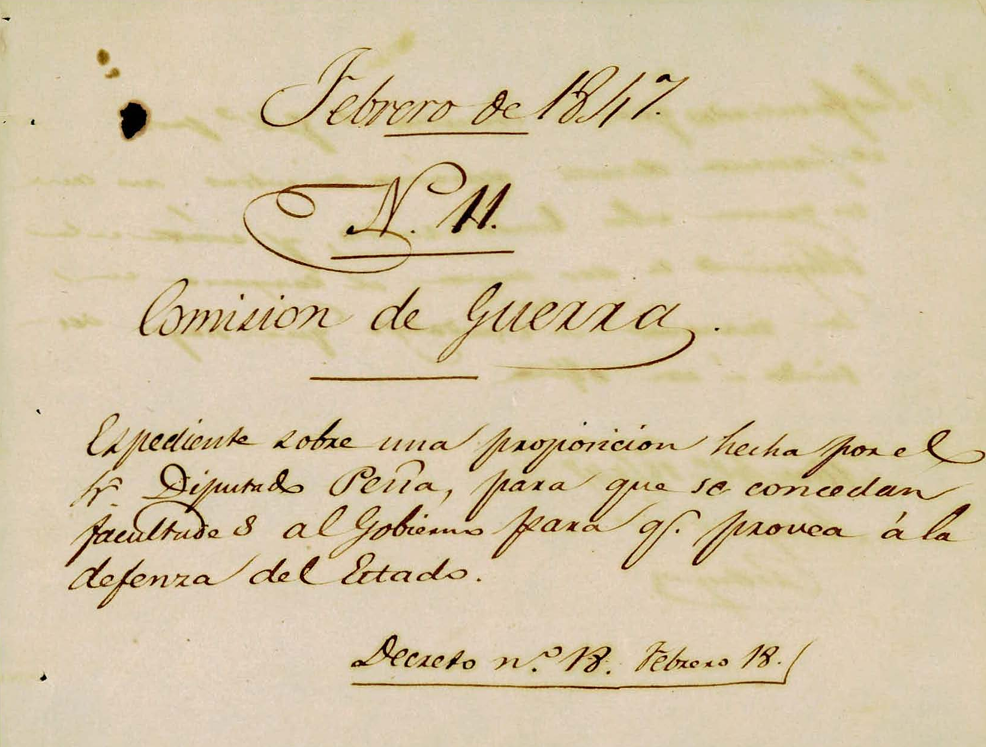 Febrero de 1847.
N. 11.
Comision de Guerra.
Espediente sobre una proposicion hecha por el
Sr. Diputado Peña, para que se concedan
facultades al Gobierno para q. provea á la
defenza del Estado.
Decreto n.º 18. Febrero 18.